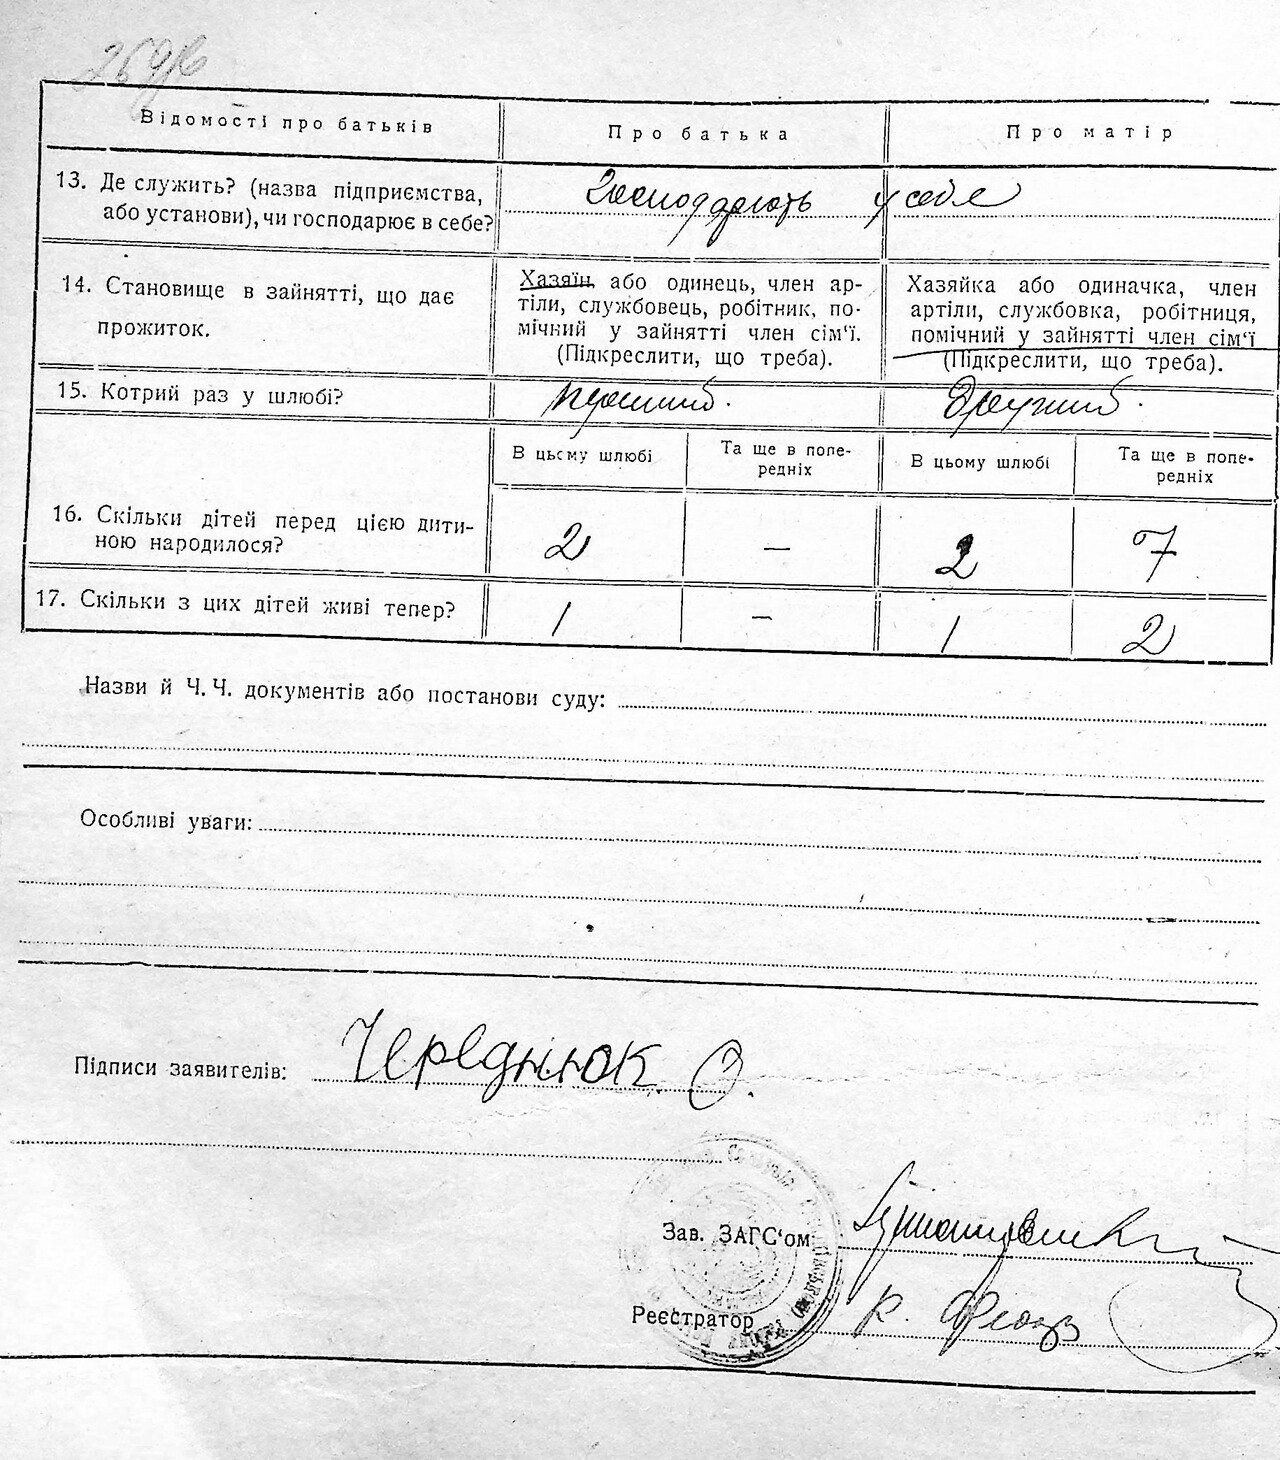 Відомості про батьків
Про батька
Про матір
13. Де служить? (назва підприємства,
або установи), чи господарює в себе?
Господарюють у себе
14. Становище в зайнятті, що дає
прожиток.
Хазяїн, або одинець, член ар-
тіли, службовець, робітник, по-
мічний у зайнятті член сім'ї.
(Підкреслити, що треба).
Хазяйка або одиначка, член
артіли, службовка, робітниця,
помічний у зайнятті член сім'ї
(Підкреслити, що треба).
15. Котрий раз у шлюбі?
перший.
другий.
В цьому шлюбі
Та ще в попе-
редніх
В цьому шлюбі
Та ще в попе-
редніх
16. Скільки дітей перед цією дити-
ною народилося?
2
—
2
7
17. Скільки з цих дітей живі тепер?
1
—
1
2
Назви й Ч. Ч. документів або постанови суду:
Особливі уваги:
Підписи заявителів:
Чередннюк О.
Зав. ЗАГС'ом
Реєстратор
К.